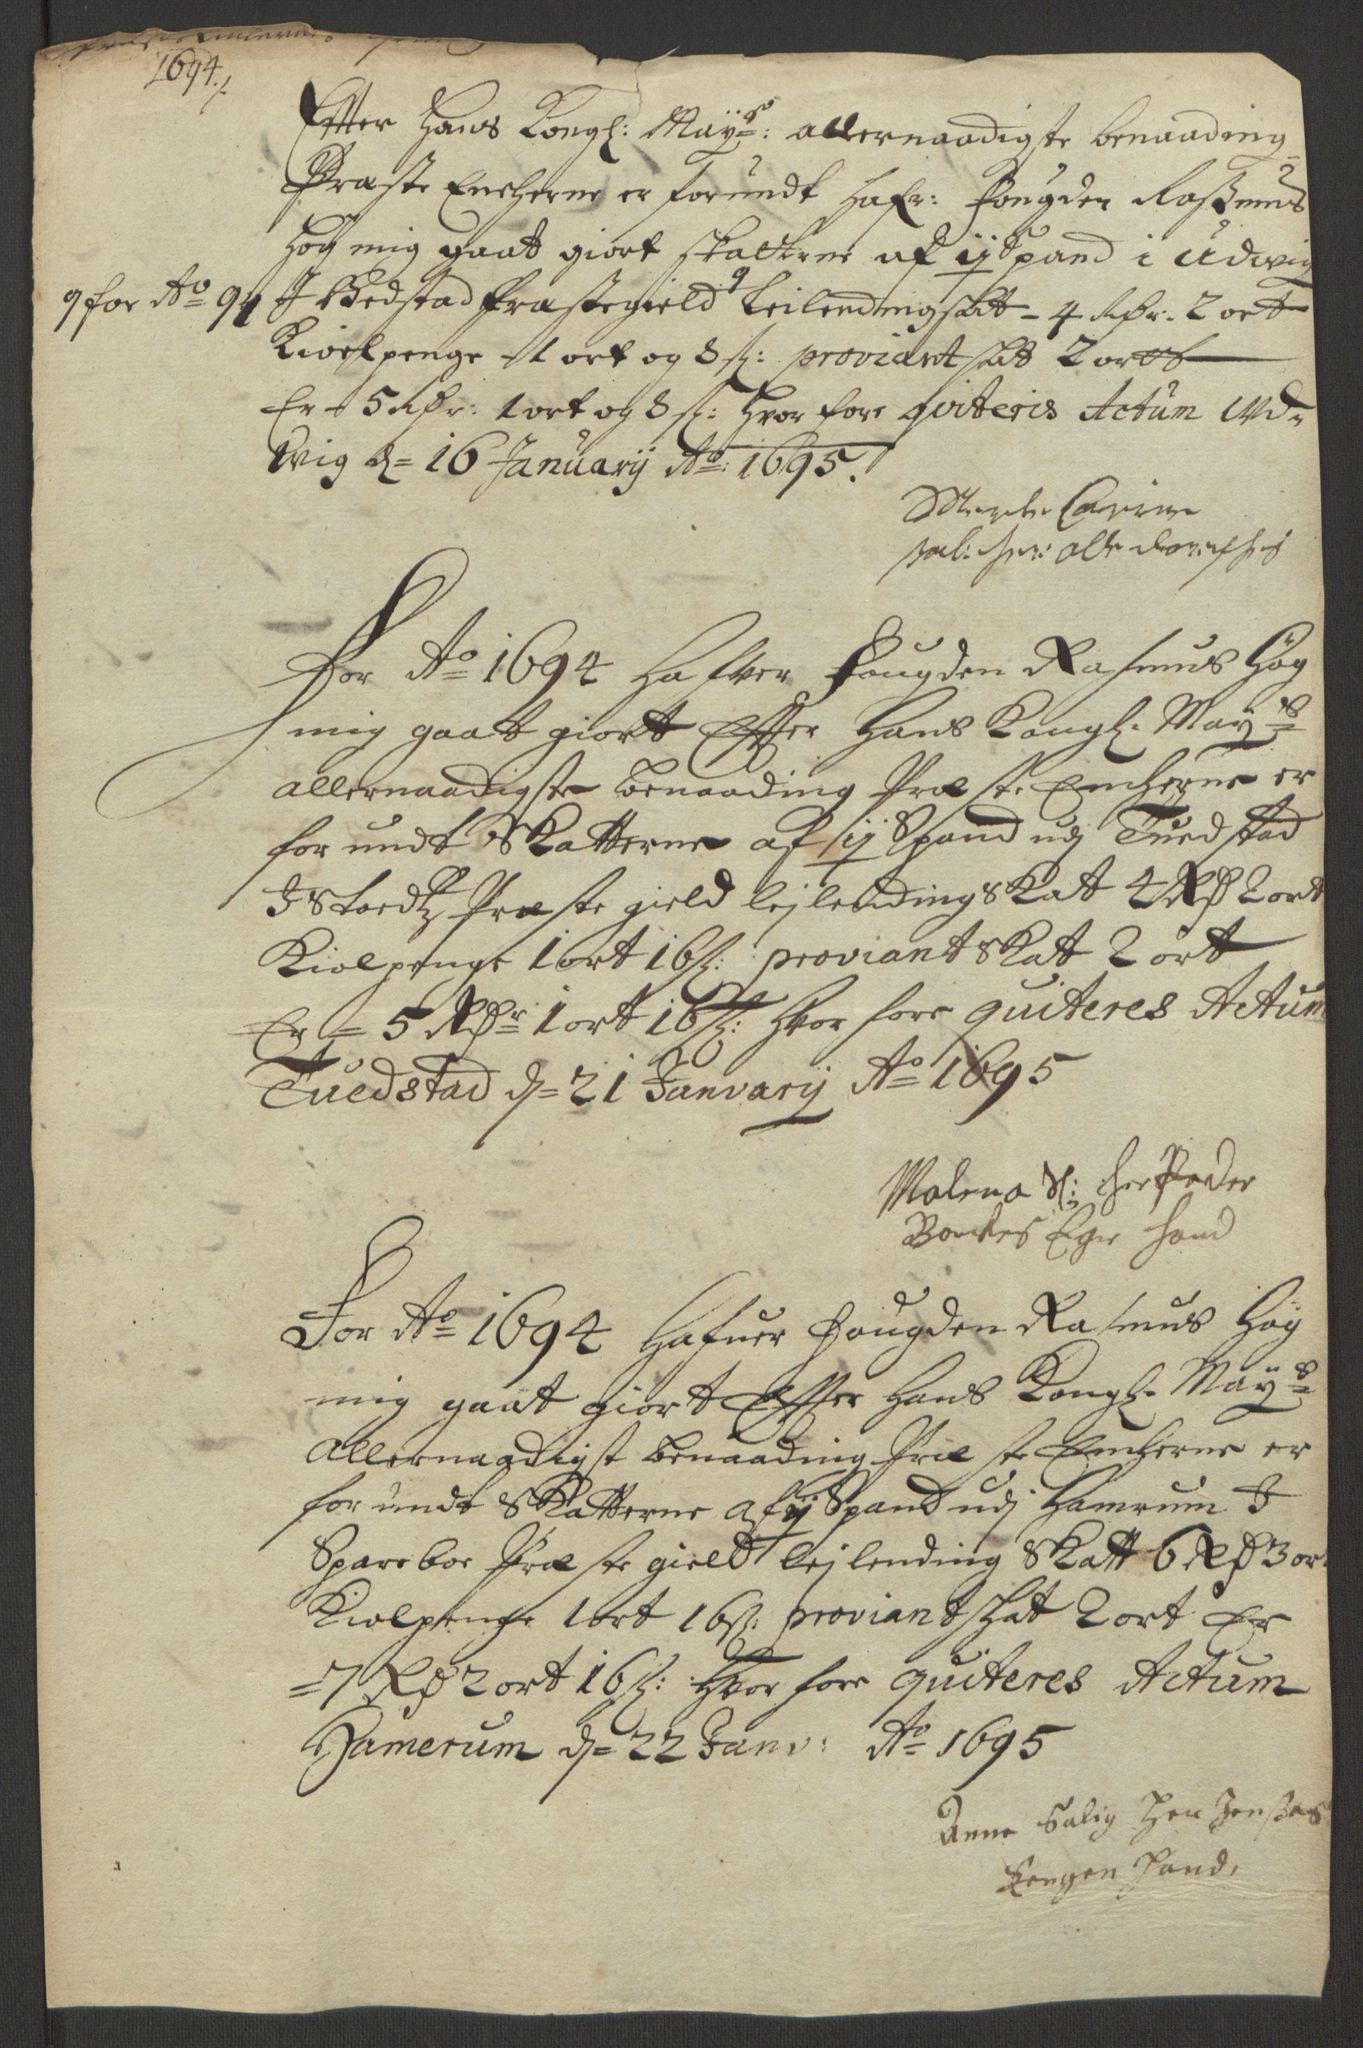 1694 ./.
Efter Hans Kongl: Mayts: allernaadigste benaading
Præste Encherne er forundt hafr: Fougden Raßmus
Hög mig gaat giort skatterne af ij Spand i Udwig
q for Ao 94 I Bedstad Præstegield q Leilendingskat - 4 Rdr. 2 ort
Kiolpenge 1 ort og 8 s: proviant skat 2 ort
Er = 5 Rdr: 1 ort og 8 s: Hvor fore qviteris Actum Ud-
wig d= 16 Januarij Ao: 1695.
Sal: Her: Ole
For Ao 1694 Hafver Fougden Rasmus Hög
mig gaat giortt Effter Hans Kongl. Mayts
allernaadigste benaading Præste Encherne er
forundt Skatterne af ij Spand udj Tuedstad
I Stoedtz Præste gield lejlending Skat 4 Rd 2 ort
Kiolpenge 1 ort 16 s: proviant Skatt 2 ort
Er = 5 Rdr 1 ort 16 s: Hvor fore quiteres Actum
Tuedstad d= 21 Januarij Ao 1695
Malena Sl: Her Peder
Bockes Egen Hand
For Ao 1694 Hafuer Fougden Rasmus Hög
mig gaat giort Effter Hans Kongl. Mayts
allernaadigst benaading Præste Encherne er
forundt Skatterne af ij Spand udj Hamrum I
Spareboe Præste gield lejlending Skatt 6 Rd 3 ort
Kiolpenge 1 ort 16 s: proviant skat 2 ort Er
= 7 Rd 2 ort 16 s: Hvor fore quiteres Actum
Hamerum d= 22 Janv: Ao 1695
Anne Salig Her Jenßes
Eengen Hand.